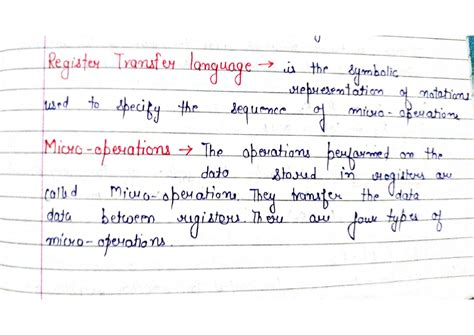 Register Transfer language → is the symbolic
representation of notations
used to specify the sequence of micro-operation
Micro-operations → The operations performed on the
data stored in registers are
called Micro-operations. They transfer the data
data between registers. There are four types of
micro-operations.